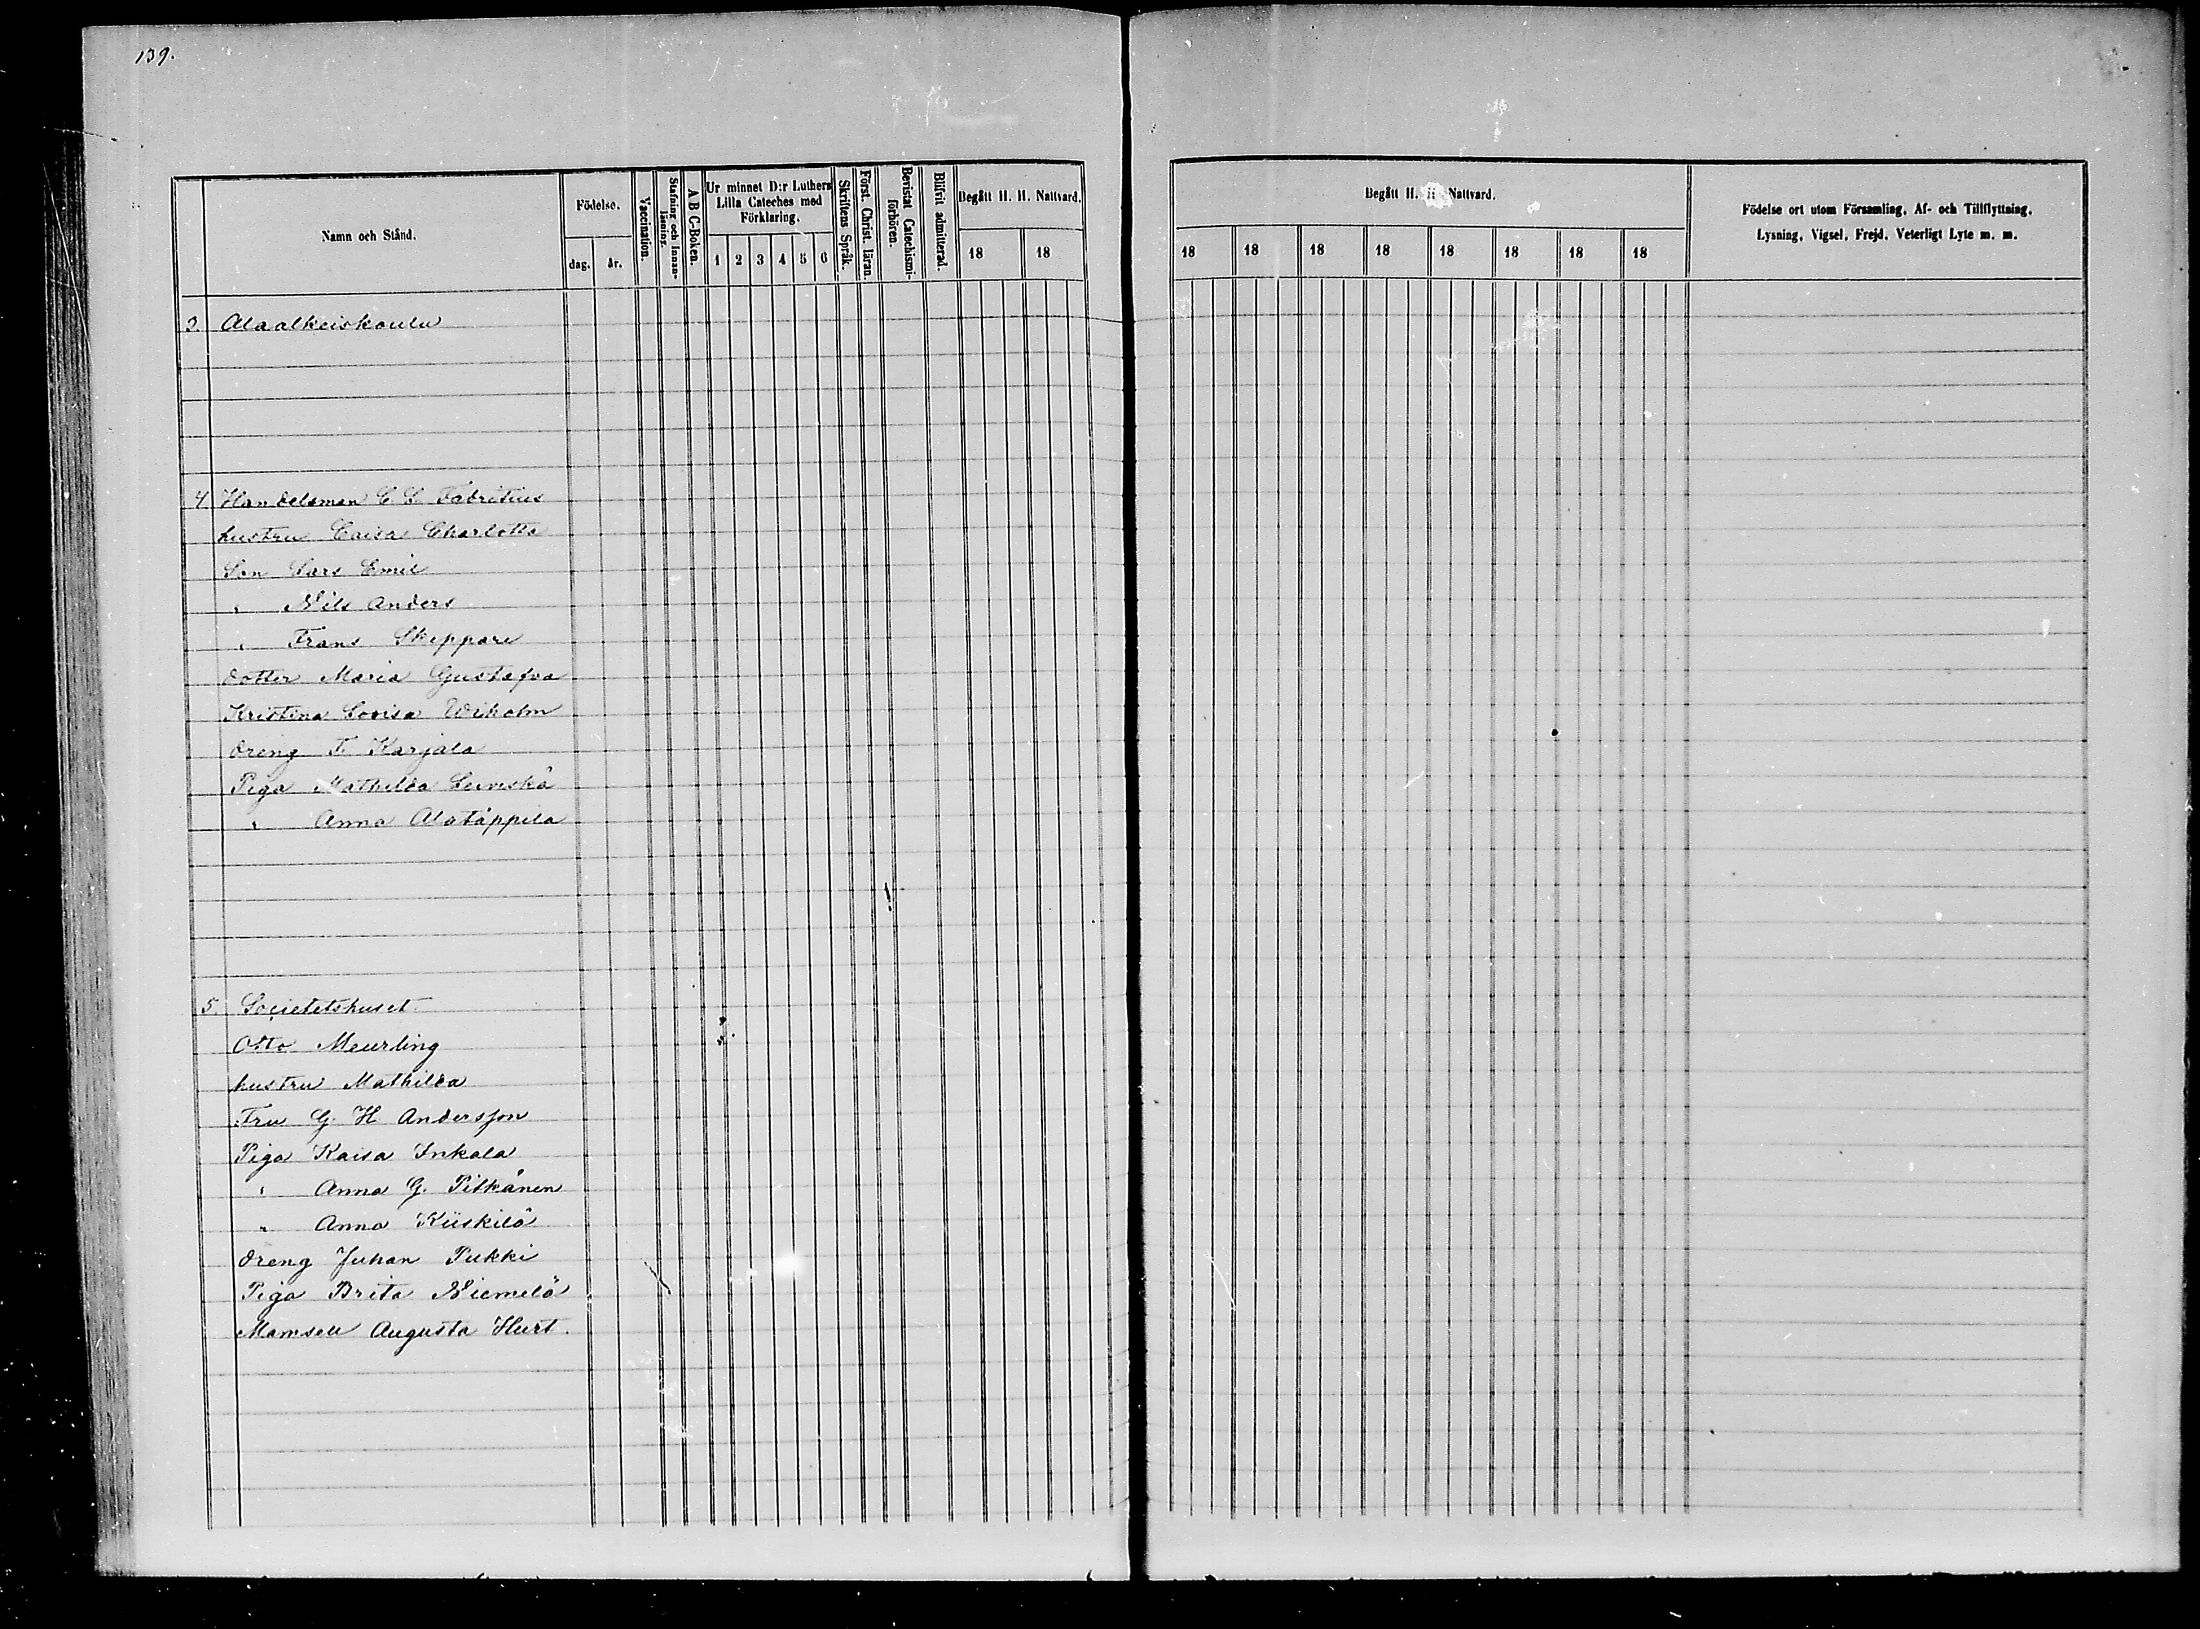 139.
Namn och Stånd.
Födelse.
dag.
år.
Vaccination.
Stafning och Innan-
läsning.
A B C-Boken.
Ur minnet D:r Luthers
Lilla Cateches med
Förklaring.
1 2 3 4 5 6
Skriftens Språk.
Först. Christ. läran.
Bevistat Catechismi-
förhören.
Blifvit admitterad.
Begått H. H. Nattvard.
18 18
Begått H. H. Nattvard.
18 18 18 18 18 18 18 18
Födelse ort utom Församling, Af- och Tillflyttning,
Lysning, Vigsel, Frejd, Veterligt Lyte m. m.
3. Alaalkeiskoulu
4 Handelsman C. C. Fabritius
hustru Caisa Charlotta
Son Lars Emil
" Nils Anders
" Frans Skeppare
dotter Maria Gustafva
Kristina Lovisa Wikolm
dreng F. Karjala
Piga Mathilda Leiviskä
" Anna Alatäppila
5. Societetshuset
Otto Meurling
hustru Mathilda
Fru G. H Andersson
Piga Kaisa Inkala
" Anna G. Pitkänen
" Anna Kiiskilä
dreng Juhan Pukki
Piga Brita Niemelä
Mamsell Augusta Hurt.